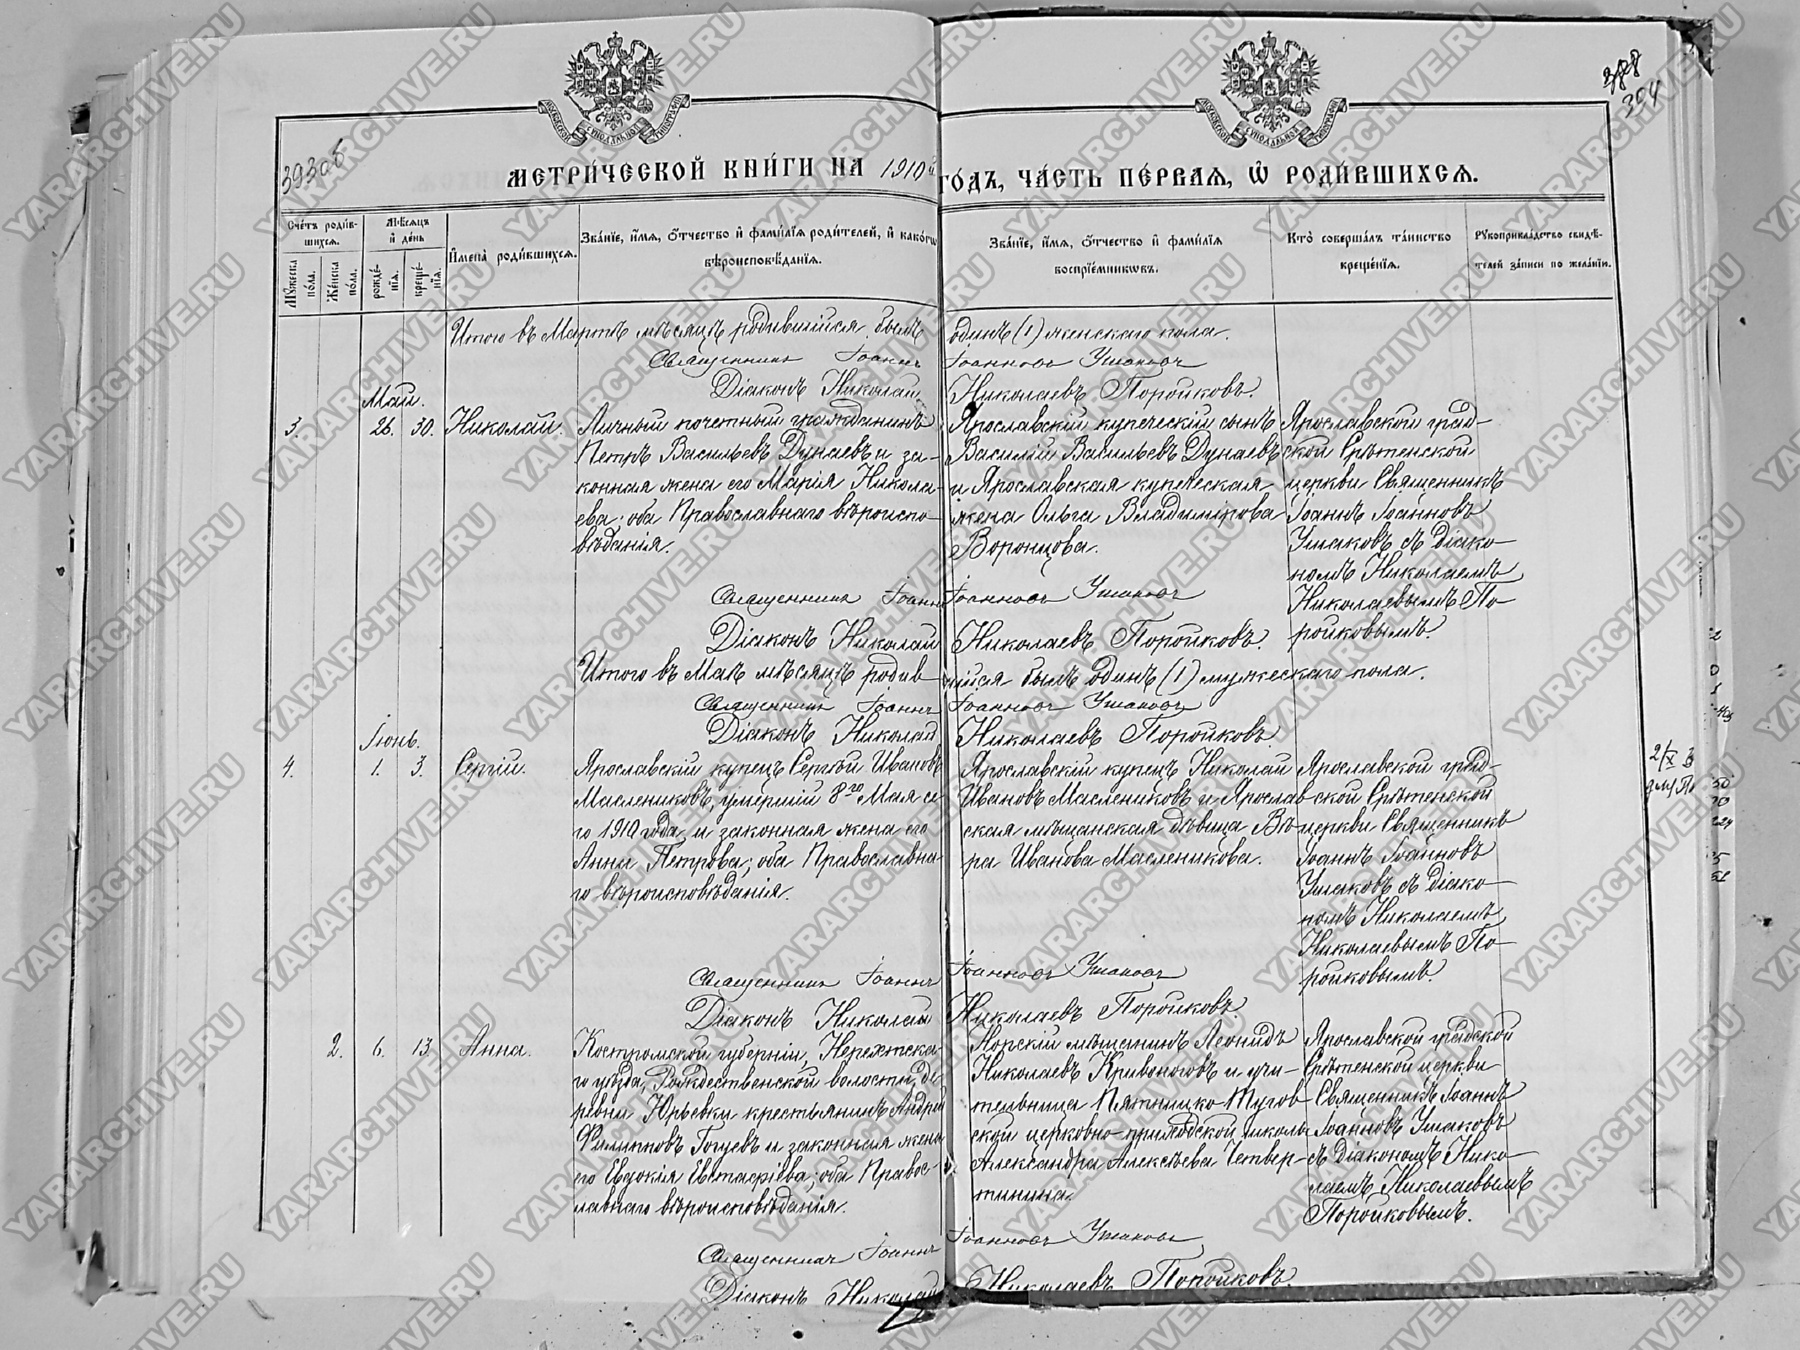 393об
388
394
МЕТРИ́ЧЕСКОЙ КНИ́ГИ НА 1910й ГО́ДЪ, ЧА́СТЬ ПЕ́РВАЯ, Ѡ РОДИ́ВШИХСЯ.
Сче́тъ роди́в-
шихся.
Му́жеска по́ла.
Же́нска по́ла.
Мѣ́сяцъ и҆ де́нь
рожде́нїя.
креще́нїя.
И҆мена̀ роди́вшихся.
Зва́нїе, и҆́мя, ѻ҆́тчество и҆ фами́лїя роди́телей, и҆ како́гѡ
вѣроисповѣ́данїя.
Зва́нїе, и҆́мя, ѻ҆́тчество и҆ фами́лїя
воспрїе́мникѡвъ.
Кто̀ соверша́лъ та́инство
креще́нїя.
Рꙋкоприкла́дство свидѣ́-
телей за́писи по жела́нїю.
Итого въ Мартѣ мѣсяцѣ родившійся былъ одинъ (1) женскаго пола.
Священникъ Іоаннъ Іоанновъ Ушаковъ
Діаконъ Николай Николаевъ Поройковъ.
Май.
3. 26. 30. Николай.
Личный почетный гражданинъ
Петръ Васильевъ Дунаевъ и за-
конная жена его Марія Никола-
ева; оба Православнаго вѣроиспо-
вѣданія.
Ярославскій купеческій сынъ
Василій Васильевъ Дунаевъ
и Ярославская купеческая
жена Ольга Владимірова
Воронцова.
Ярославской град-
ской Срѣтенской
церкви Священникъ
Іоаннъ Іоанновъ
Ушаковъ съ діако-
номъ Николаемъ
Николаевымъ По-
ройковымъ.
Священникъ Іоаннъ Іоанновъ Ушаковъ
Діаконъ Николай Николаевъ Поройковъ.
Итого въ Маѣ мѣсяцѣ родившійся былъ одинъ (1) мужескаго пола.
Священникъ Іоаннъ Іоанновъ Ушаковъ
Діаконъ Николай Николаевъ Поройковъ.
Іюнь.
4. 1. 3. Сергій.
Ярославскій купецъ Сергѣй Ивановъ
Маслениковъ, умершій 8го Мая се-
го 1910 года, и законная жена его
Анна Петрова; оба Православна-
го вѣроисповѣданія.
Ярославскій купецъ Николай
Ивановъ Маслениковъ и Ярослав-
ская мѣщанская дѣвица Вѣ-
ра Иванова Масленикова.
Ярославской град-
ской Срѣтенской
церкви Священникъ
Іоаннъ Іоанновъ
Ушаковъ съ діако-
номъ Николаемъ
Николаевымъ По-
ройковымъ.
Священникъ Іоаннъ Іоанновъ Ушаковъ
Діаконъ Николай Николаевъ Поройковъ.
2. 6. 13. Анна.
Костромской губерніи, Нерехтска-
го уѣзда, Рождественской волости, де-
ревни Юрьевки крестьянинъ Андрей
Филипповъ Гогуевъ и законная жена
его Евдокія Евстафіева; оба Правос-
лавнаго вѣроисповѣданія.
Норскій мѣщанинъ Леонидъ
Николаевъ Кривоноговъ и учи-
тельница Пятницко-Тугов-
ской церковно-приходской школы
Александра Алексѣева Четвер-
тинина.
Ярославской градской
Срѣтенской церкви
Священникъ Іоаннъ
Іоанновъ Ушаковъ
съ діакономъ Нико-
лаемъ Николаевымъ
Поройковымъ.
Священникъ Іоаннъ Іоанновъ Ушаковъ
Діаконъ Николай Николаевъ Поройковъ.
YARARCHIVE.RU